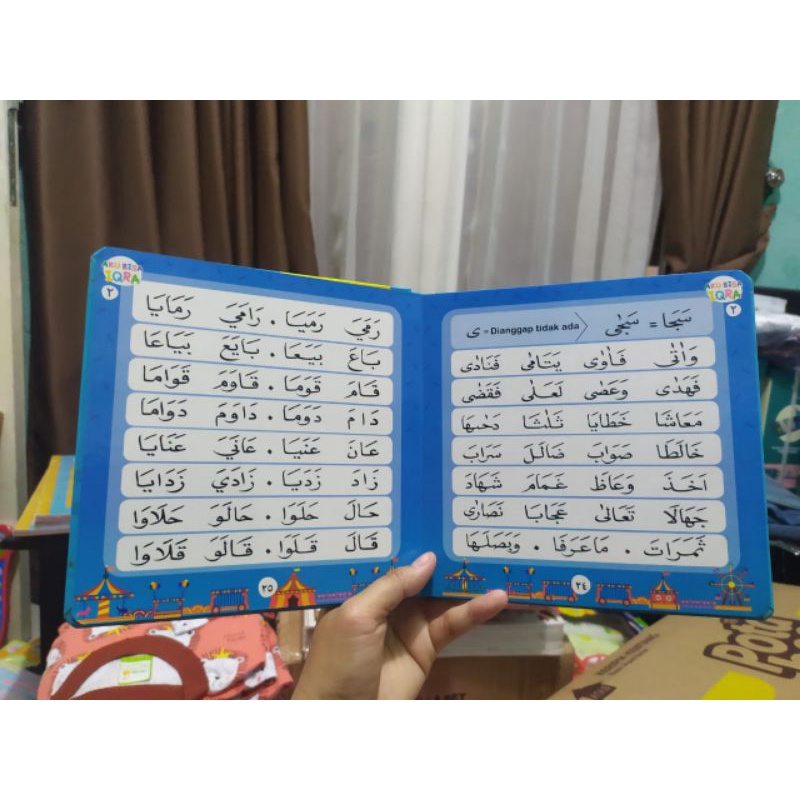 AKU BISA
IQRA
٢
سَجَا = سَجٰى
ى = Dianggap tidak ada
وَاتٰى فَاوٰى يَتَامٰى فَنَادٰى
فَهَدٰى وَعَصٰى لَعَلٰى فَقَضٰى
مَعَاشَا خَطَايَا
خَالَطَا صَوَابَ ضَالَلَ سَرَابَ
اَخَذَ وَعَاظَ غَمَامَ شَهَادَ
جَهَالَا تَعَالٰى عَجَابَا نَصَارٰى
ثَمَرَاتَ . مَاعَرَفَا . وَبَصَلَهَا
٢٤
AKU BISA
IQRA
٢
رَمَيَ رَمَيَا . رَامَيَ رَمَايَا
بَاعَ بَيَعَا . بَايَعَ بَيَاعَا
قَامَ قَوَمَا . قَاوَمَ قَوَامَا
دَامَ دَوَمَا . دَاوَمَ دَوَامَا
عَانَ عَنَيَا . عَانَيَ عَنَايَا
زَادَ زَدَيَا . زَادَيَ زَدَايَا
حَالَ حَلَوَا . حَالَوَ حَلَاوَا
قَالَ قَلَوَا . قَالَوَ قَلَاوَا
٢٥